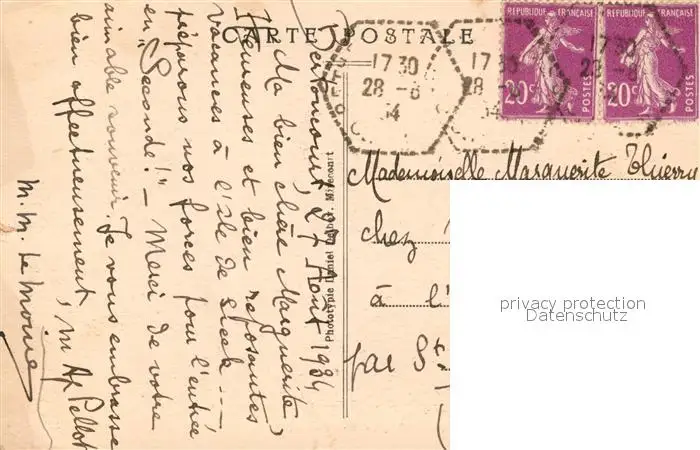 CARTE POSTALE
REPUBLIQUE FRANÇAISE
20c
POSTES
REPUBLIQUE FRANÇAISE
20c
POSTES
17 30
28 - 8
34
17 30
28
34
27 Août 1934
Ma bien chère Marguerite,
Heureuses et bien reposantes
vacances à l'île de
préparons nos forces pour l'entrée
en "Seconde!" - Merci de votre
aimable souvenir. Je vous embrasse
bien affectueusement,
M. M. Le Moine
Phototypie Daniel Delboy, Mirecourt
Mademoiselle Marguerite Thierry
chez
à l'
par St
privacy protection
Datenschutz